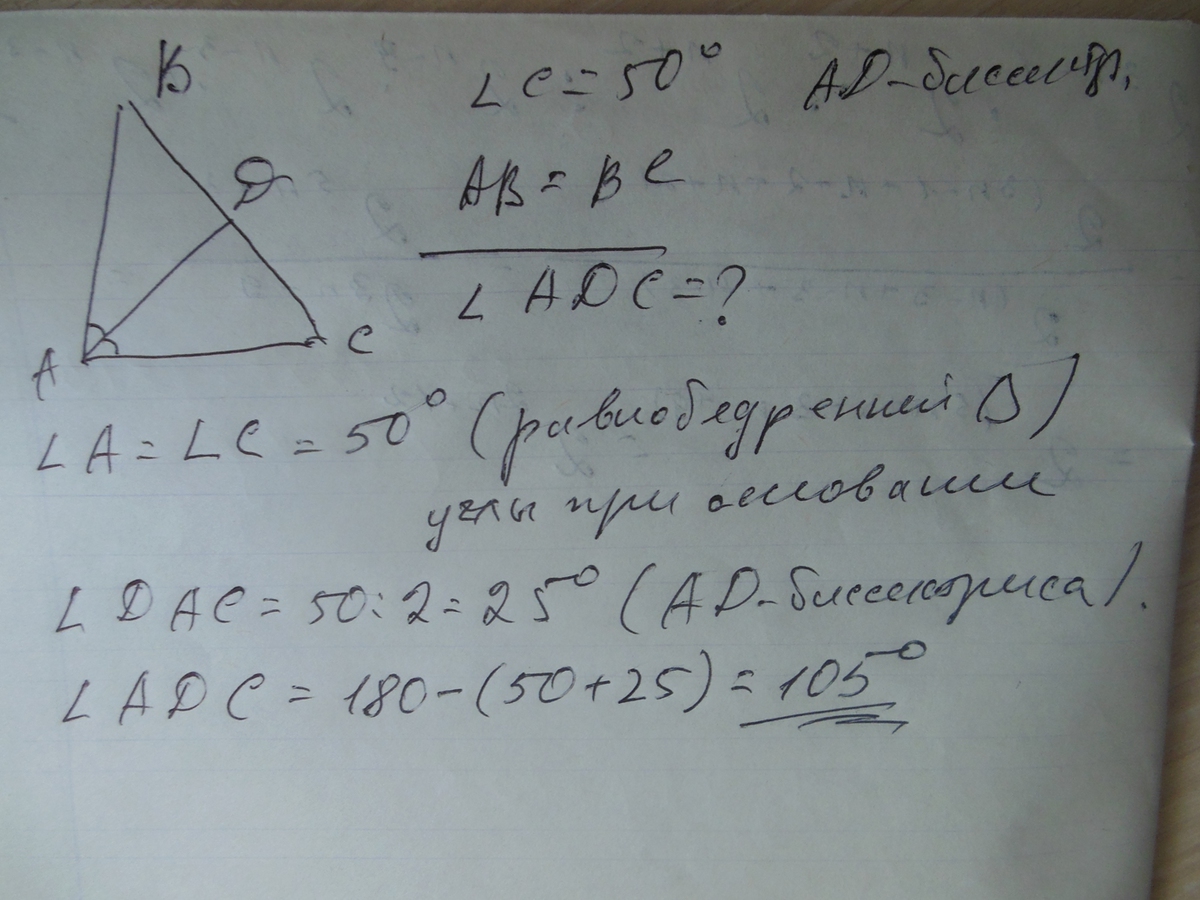 B
D
A
C
∠C=50° AD-биссектр,
AB=BC
∠ADC=?
∠A=∠C=50° (равнобедренный Δ)
углы при основании
∠DAC=50:2=25° (AD-биссектриса).
∠ADC=180-(50+25)=105°